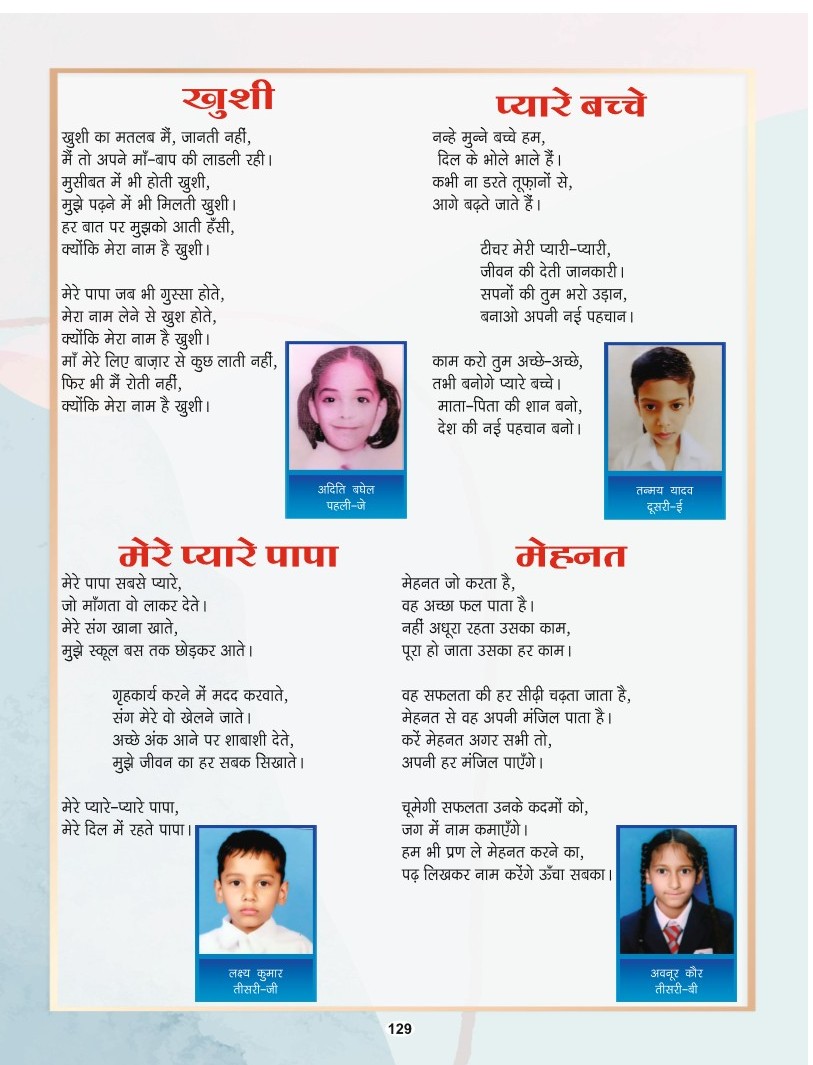 खुशी
खुशी का मतलब मैं, जानती नहीं,
मैं तो अपने माँ-बाप की लाडली रही।
मुसीबत में भी होती खुशी,
मुझे पढ़ने में भी मिलती खुशी।
हर बात पर मुझको आती हँसी,
क्योंकि मेरा नाम है खुशी।
मेरे पापा जब भी गुस्सा होते,
मेरा नाम लेने से खुश होते,
क्योंकि मेरा नाम है खुशी।
माँ मेरे लिए बाज़ार से कुछ लाती नहीं,
फिर भी मैं रोती नहीं,
क्योंकि मेरा नाम है खुशी।
अदिति बघेल
पहली-जे
प्यारे बच्चे
नन्हे मुन्ने बच्चे हम,
दिल के भोले भाले हैं।
कभी ना डरते तूफ़ानों से,
आगे बढ़ते जाते हैं।
टीचर मेरी प्यारी-प्यारी,
जीवन की देती जानकारी।
सपनों की तुम भरो उड़ान,
बनाओ अपनी नई पहचान।
काम करो तुम अच्छे-अच्छे,
तभी बनोगे प्यारे बच्चे।
माता-पिता की शान बनो,
देश की नई पहचान बनो।
तन्मय यादव
दूसरी-ई
मेरे प्यारे पापा
मेरे पापा सबसे प्यारे,
जो माँगता वो लाकर देते।
मेरे संग खाना खाते,
मुझे स्कूल बस तक छोड़कर आते।
गृहकार्य करने में मदद करवाते,
संग मेरे वो खेलने जाते।
अच्छे अंक आने पर शाबाशी देते,
मुझे जीवन का हर सबक सिखाते।
मेरे प्यारे-प्यारे पापा,
मेरे दिल में रहते पापा।
लक्ष्य कुमार
तीसरी-जी
मेहनत
मेहनत जो करता है,
वह अच्छा फल पाता है।
नहीं अधूरा रहता उसका काम,
पूरा हो जाता उसका हर काम।
वह सफलता की हर सीढ़ी चढ़ता जाता है,
मेहनत से वह अपनी मंजिल पाता है।
करें मेहनत अगर सभी तो,
अपनी हर मंजिल पाएँगे।
चूमेगी सफलता उनके कदमों को,
जग में नाम कमाएँगे।
हम भी प्रण ले मेहनत करने का,
पढ़ लिखकर नाम करेंगे ऊँचा सबका।
अवनूर कौर
तीसरी-बी
129